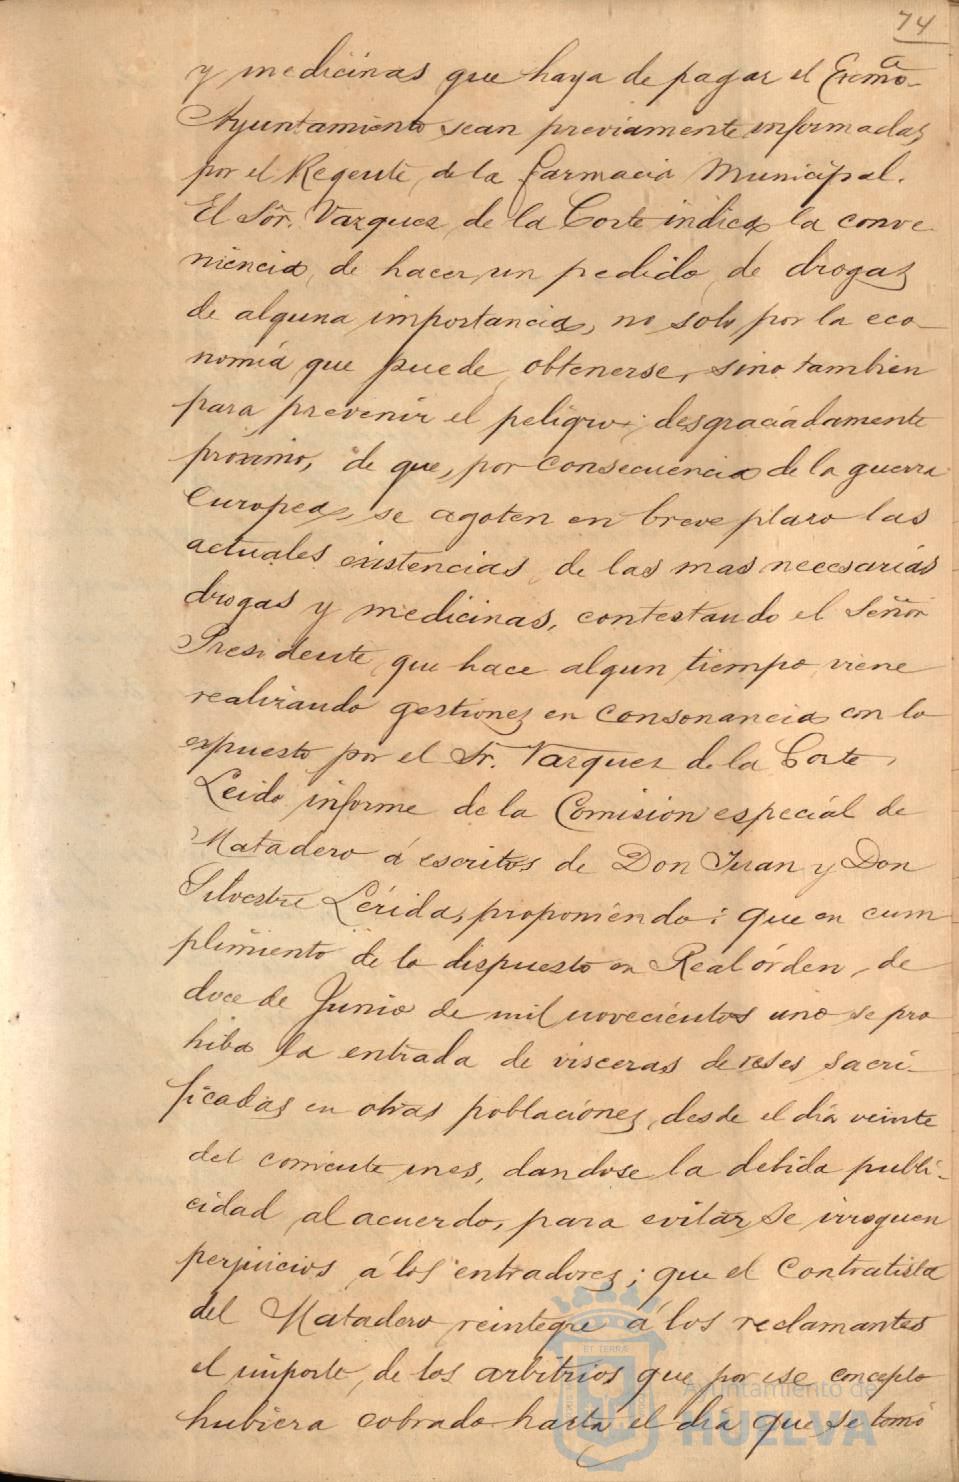 74
y medicinas que haya de pagar el Excmo.
Ayuntamiento, sean previamente informadas
por el Regente de la farmacia Municipal.
El Sor. Vazquez de la Corte indica la conve
niencia de hacer un pedido de drogas
de alguna importancia, no solo por la eco-
nomía que puede obtenerse, sino tambien
para prevenir el peligro, desgraciadamente
próximo, de que, por consecuencia de la guerra
europea, se agoten en breve plazo las
actuales existencias de las mas necesarias
drogas y medicinas, contestando el Señor
Presidente que hace algun tiempo viene
realizando gestiones en consonancia con lo
espuesto por el Sr. Vazquez de la Corte.
Leido informe de la Comision especial de
Matadero á escritos de Don Juan y Don
Silvestre Lérida, proponiendo: que en cum
plimiento de lo dispuesto en Real órden de
doce de Junio de mil novecientos uno se pro
hiba la entrada de visceras de reses sacri-
ficadas en otras poblaciones, desde el día veinte
del corriente mes, dandose la debida publi-
cidad al acuerdo, para evitar se irroguen
perjuicios á los entradores; que el Contratista
del Matadero reintegre á los reclamantes
el importe de los arbitrios que por ese concepto
hubiera cobrado hasta el dia que se tomó
ET TERRÆ
Ayuntamiento de
HUELVA